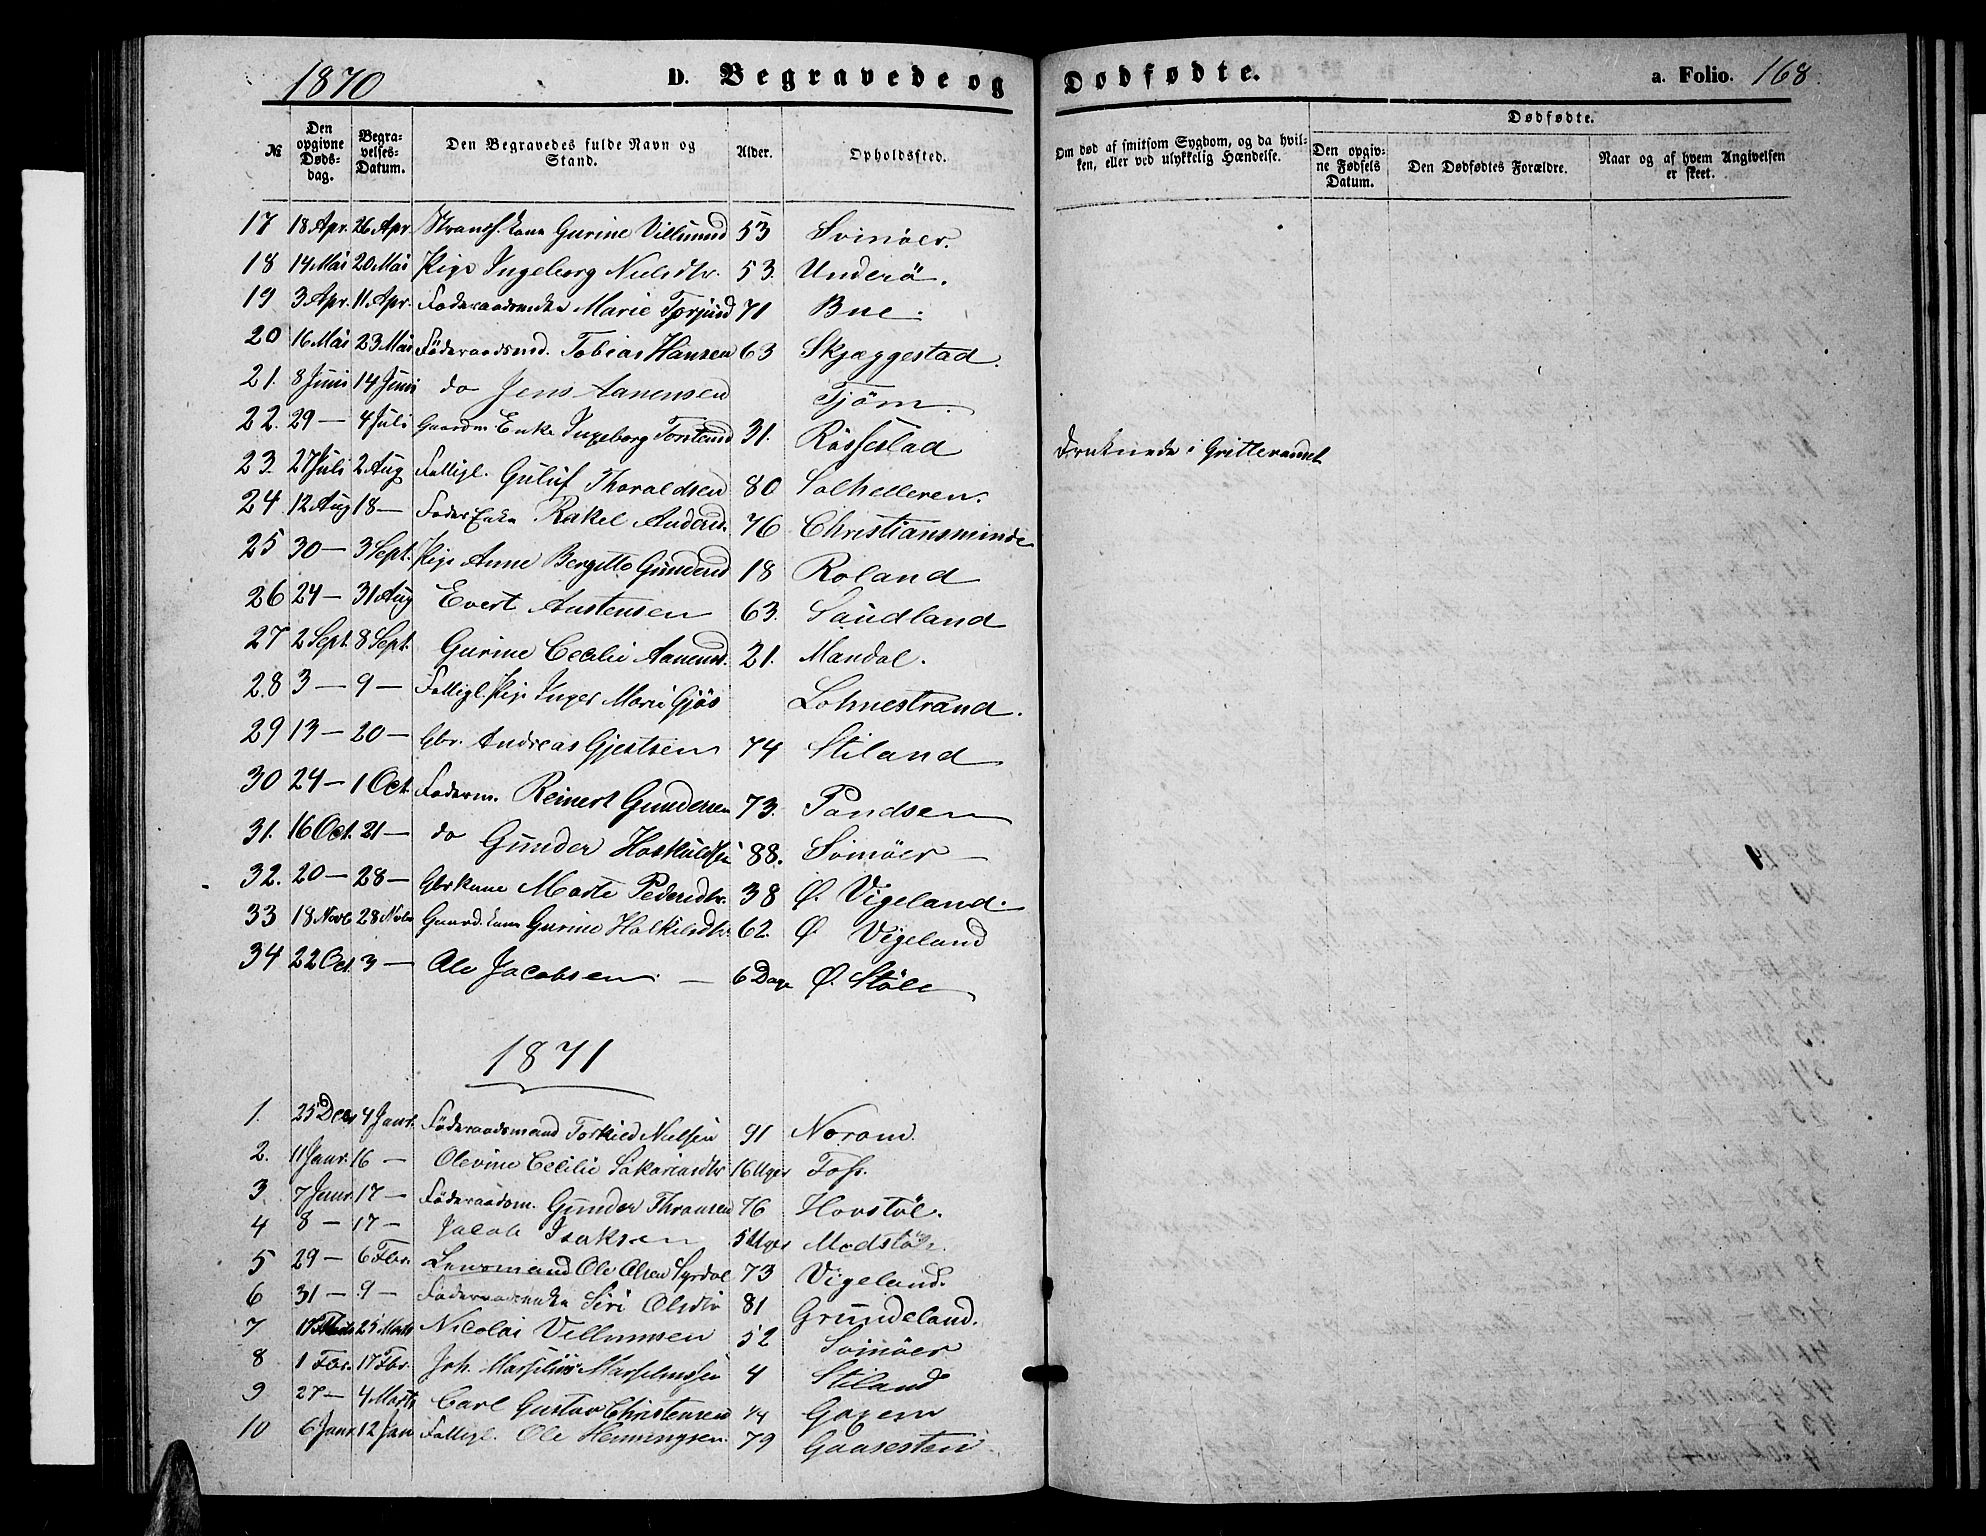 1870 D. Begravede og Dødfødte. a. Folio. 168.
№ Den opgivne Døds-dag. Begra-velses-Datum. Den Begravedes fulde Navn og Stand. Alder. Opholdssted. Om død af smitsom Sygdom, og da hvil-ken, eller ved ulykkelig Hændelse. Dødfødte. Den opgiv-ne Fødsels Datum. Den Dødfødtes Forældre. Naar og af hvem Angivelsen er skeet.
17 18 Apr. 26 Apr. Gurine Villumsd 53 Svinöer.
18 14 Mai 20 Mai Pige Ingeborg Nielsdtr. 53. Underö.
19 3 Apr. 11 Apr. Föderaadsenke Marie Torjusd 71 Bue.
20 16 Mai 23 Mai Föderaadsmd. Tobias Hansen 63 Skjæggestad.
21. 8 Juni 14 Juni do Jens Aanensen Tjöm.
22. 29 — 4 Juli Gaardm Enke Ingeborg Torstensd 31. Rössestad
23. 27 Juli 2 Aug Fattigl. Guluf Thoraldsen 80 Solhelleren. druknede i
24. 12 Aug 18 — Föder Enke Rakel Andersd. 76 Christiansminde
25 30 — 3 Sept. Pige Anne Bergitte Gundersd 18 Roland
26 24 — 31 Aug Evert Austensen 63. Saudland
27 2 Sept. 8 Sept. Gurine Cecilie Aanensd. 21. Mandal.
28 3 — 9 — Fattigl. Pige Inger Marie Gjös Lohnestrand.
29 13 — 20 — Gbr. Andreas Gjertsen 74 Stiland
30 24 — 1 Oct. Föderm. Reinert Gundersen 73. Pandsen
31. 16 Oct. 21 — do Gunder Hoskuldsen 88. Svinöer —
32. 20 — 28 — Gbrkone Marte Pedersdtr. 38 Ø. Vigeland.
33 18 Novb 28 Novbr Gaard.kone Gurine Halkilsdtr. 62. Ø Vigeland
34 22 Oct. 3 — Ole Jacobsen — 6 Dage Ø. Stöle
1871
1. 25 Dec 4 Janr. Föderaadsmand Torkild Nielsen 91 Norom.
2. 11 Janr. 16 — Olevine Cecilie Sakariasdtr 16 Uger Foss.
3. 7 Janr 17 — Föderaadsm. Gunder Thronsen 76 Hovstöl.
4 8 — 17 — Jacob Isaksen 5 Uger Modstöl.
5 29 — 6 Fbr. Lensmand Ole Olsen Syrdal 73 Vigeland.
6 31 — 9 — Föderaadsenke Siri Olsdtr 81 Grundeland.
7 25 Marts Nicolai Villumsen 52 Svinöer
8 1 Fbr. 17 Fbr. Joh. Marselius Marseliussen 4 Stiland
9 27 — 4 Marts Carl Gustav Christensen 1/4 Goxem
10 6 Janr 12 Jan Fattigl. Ole Henningsen. 79 Gaasesten